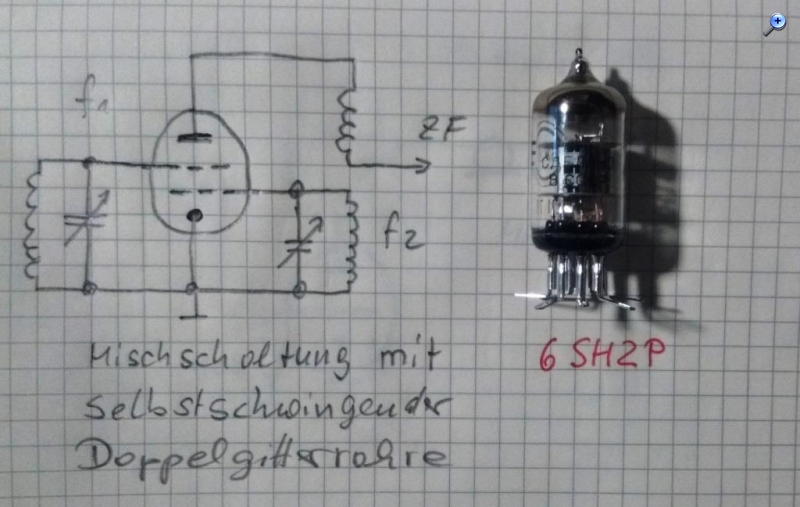 f1
ZF
f2
6SH2P
Mischschaltung mit
selbstschwingender
Doppelgitterröhre